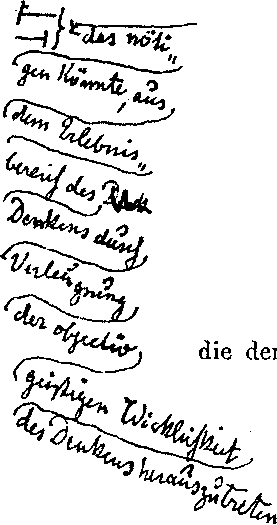 das nöti„
gen könnte, aus
dem Erlebnis„
bereich des
Denkens durch
Verleugnung
der objectiv
geistigen Wirklichkeit
des Denkens herauszutreten
die der